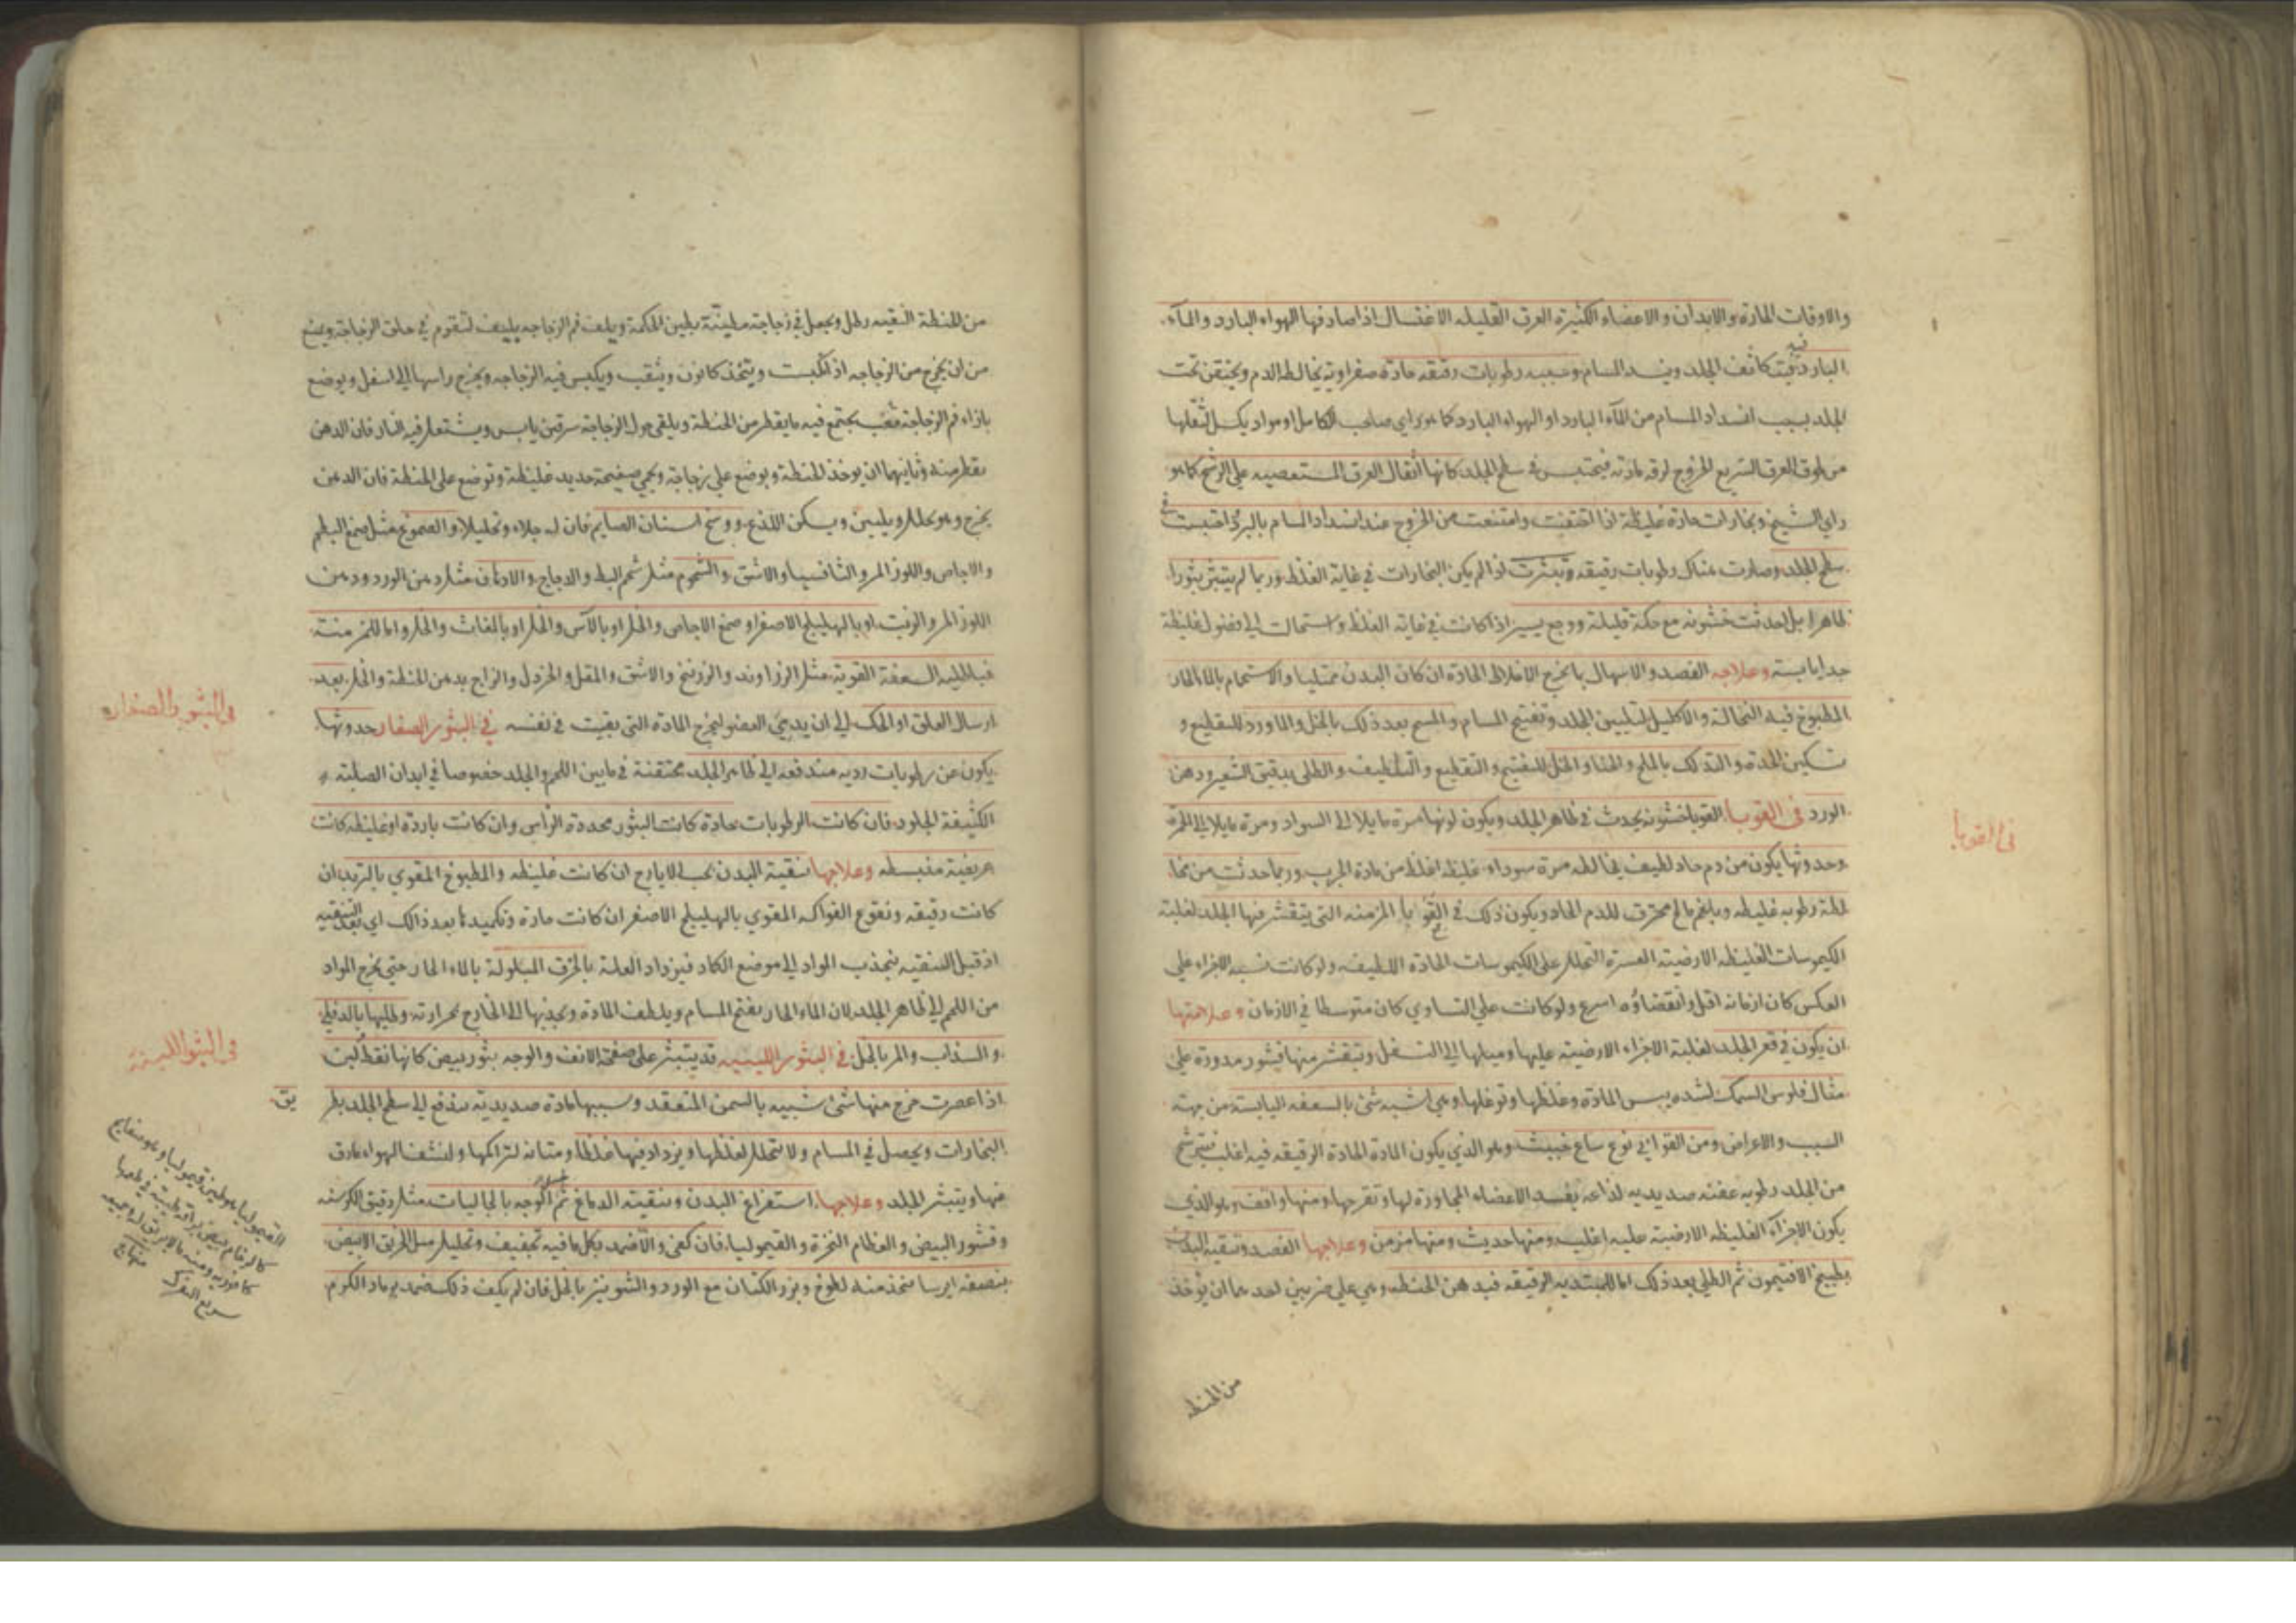 والاوقات الحارة والابدان والاعضاء الكثيرة العرق القليله الاغتسال اذا صادفها الهواء البارد والمآء
البارد فيتكاثف الجلد وينسد المسام وسببه رطوبات رقيقه حادة صفراوية يخالط الدم ويحتقن تحت
الجلد بسبب انسداد المسام من المآء البارد او الهواء البارد كما هو راي صاحب الكامل او مواد يكسل لثقلها
من لحوق العرق السريع الخروج لرقه مادته فيحتبس في سطح الجلد كانها اثقال العرق المستعصيه علي الرشح كما هو
راي الشيخ وبخارات حادة غليظة اذا احتقنت وامتنعت من الخروج عند انسداد المسام بالبرد احتبست في
سطح الجلد وصارت هناك رطوبات رقيقه وتبثرت اذا لم يكن البخارات في غاية الغلظ وربما لم يتبثر بثورا
ظاهرا بل احدثت خشونه مع حكة قليلة ووجع يسير اذا كانت في غاية الغلظ واستحالت الي فضول غليظة
جدا يابسته وعلاجه الفصد والاسهال بما يخرج الاخلاط الحادة ان كان البدن ممتليا والاستحمام بالماء الحار
المطبوخ فيه النخالة والاكليل لتليين الجلد وتفتيح المسام والمسح بعد ذلك بالخل والماورد للتقطيع و
تسكين الحدة والتدلك بالملح والحنا والخل للتفتيح والتقطيع والتلطيف والطلي بدقيق الشعير ودهن
الورد في القوبا القوبا خشونه يحدث في ظاهر الجلد ويكون لونها مرة مايلا الي السواد ومرة مايلا الي الحمرة
وحدوثها يكون من دم حاد لطيف يخالطه مرة سوداء غليظه اغلظ من مادة الجرب وربما حدثت من مخا
لطة رطوبه غليظه وبلغم مالح محترق للدم الحاد ويكون ذلك في القوابا المزمنه التي يتقشر فيها الجلد لغلبة
الكيموسات الغليظه الارضيته العسرة التحلل علي الكيموسات الحادة اللطيفه ولو كانت نسبة الاجزاء علي
العكس كان ازمانه اقل وانقضاؤه اسرع ولو كانت علي التساوي كان متوسطا في الازمان وعلامتها
ان يكون في قعر الجلد لغلبة الاجزاء الارضيته عليها وميلها الي التسفل وتتقشر منها قشور مدورة علي
مثال فلوس السمك لشده يبس المادة وغلظها وتوغلها وهي اشبه شئ بالسعفه اليابسة من جهته
السبب والاعراض ومن القوابي نوع ساع خبيث وهو الذي يكون المادة الحادة الرقيقه فيه اغلب فيترشح
من الجلد رطوبه عفنه صديديه لذاعه يفسد الاعضاء المجاورة لها وتقرحها ومنها واقف وهو الذي
يكون الاجزآء الغليظه الارضيته عليه اغلب ومنها حديث ومنها مزمن وعلاجها الفصد وتنقيه البدن
بطبيخ الافتيمون ثم الطلي بعد ذلك اما للمبتديه الرقيقه فبدهن الحنطه وهي علي ضربين احدهما ان يؤخذ
من الحنطه
في القوبا
من الحنطة النقيه رطل ويجعل في زجاجة مطينة بطين الحكمة ويلف فم الزجاجه بليف لتقوم في حلق الزجاجة ويمنع
من ان يخرج من الزجاجه اذا نكبت ويتخذ كانون ويثقب ويكبس فيه الزجاجه ويخرج راسها الي اسفل ويوضع
بازاء فم الزجاجة قعب يجتمع فيه ما يقطر من الحنطة ويلقي حول الزجاجة سرقين يابس ويشتعل فيه النار فان الدهن
يقطر منه وثانيهما ان يوخذ الحنطة ويوضع علي زجاجة ويحمي صفيحة حديد غليظة وتوضع علي الحنطة فان الدهن
يخرج وهو يحلل ويليين ويسكن اللذع ووسخ اسنان الصايم فان له جلاء وتحليلا والصموغ مثل صمغ البطم
والاجاص واللوز المر والثافسيا والاشق والشحوم مثل شحم البط والدجاج والادهان مثل دهن الورد ودهن
اللوز المر والزيت او بالهليلج الاصفر او صمغ الاجاص والخل او بالآس والخل او بالمغاث والخل واما للمزمنته
فباطليه السعفة القوية مثل الزراوند والزرنيخ والاشق والمقل والخردل والزاج بدهن الحنطة والخل بعد
ارسال العلق او الحك الي ان يدمي العضو ليخرج المادة التي بقيت في نفسه في البثور الصغار حدوثها
يكون عن رطوبات رديه مندفعه الي ظاهر الجلد محتقنة في مابين اللحم والجلد خصوصا في ابدان الصلبته
الكثيفة الجلود فان كانت الرطوبات حادة كانت البثور محددة الرأس وان كانت باردة او غليظه كانت
عريضة منبسطه وعلاجها تنقية البدن بحب الايارج ان كانت غليظه والمطبوخ المقوي بالتربد ان
كانت رقيقه ونقوع الفواكه المقوي بالهليلج الاصفر ان كانت حادة وتكميدها بعد ذالك اي بعد التنقيه
اذ قبل التنقيه ينجذب المواد الي موضع الكماد فيزداد العلة بالخرق المبلولة بالماء الحار حتي يخرج المواد
من اللحم الي ظاهر الجلد لان الماء الحار يفتح المسام ويلطف المادة ويجذبها الي الخارج بحرارته وطليها بالدفلي
والسذاب والمر بالخل في البثور اللبنيه قد يتبثر علي صفحة الانف والوجه بثور بيض كانها نقط لبن
اذا عصرت خرج منها شئ شبيه بالسمن المنعقد وسببها مادة صديدية تندفع الي سطح الجلد بطر
البخارات ويحصل في المسام ولا تتحلل لغلظها ويزداد فيها غلظا ومتانه لتراكمها ولنشف الهواء مارق
منها ويتبثر الجلد وعلاجها استفراغ البدن وتنقيته الدماغ ثم غسل الوجه بالجاليات مثل دقيق الكرسنه
وقشور البيض والعظام النخرة والقيموليا فان كفي والا ضمد بكل مافيه تجفيف وتحليل مثل الخربق الابيض
بنصفه ايرسا يتخذ منه لطوخ وبزر الكتان مع الورد والشونيز بالخل فان لم يكف ذلك ضمد برماد الكرم
في البثور الصغار
في البثور اللبنية
يق
القيموليا هو طين قيموليا وهو صفايح
كالرخام بيض براقه
سريع التفرك
منهاج